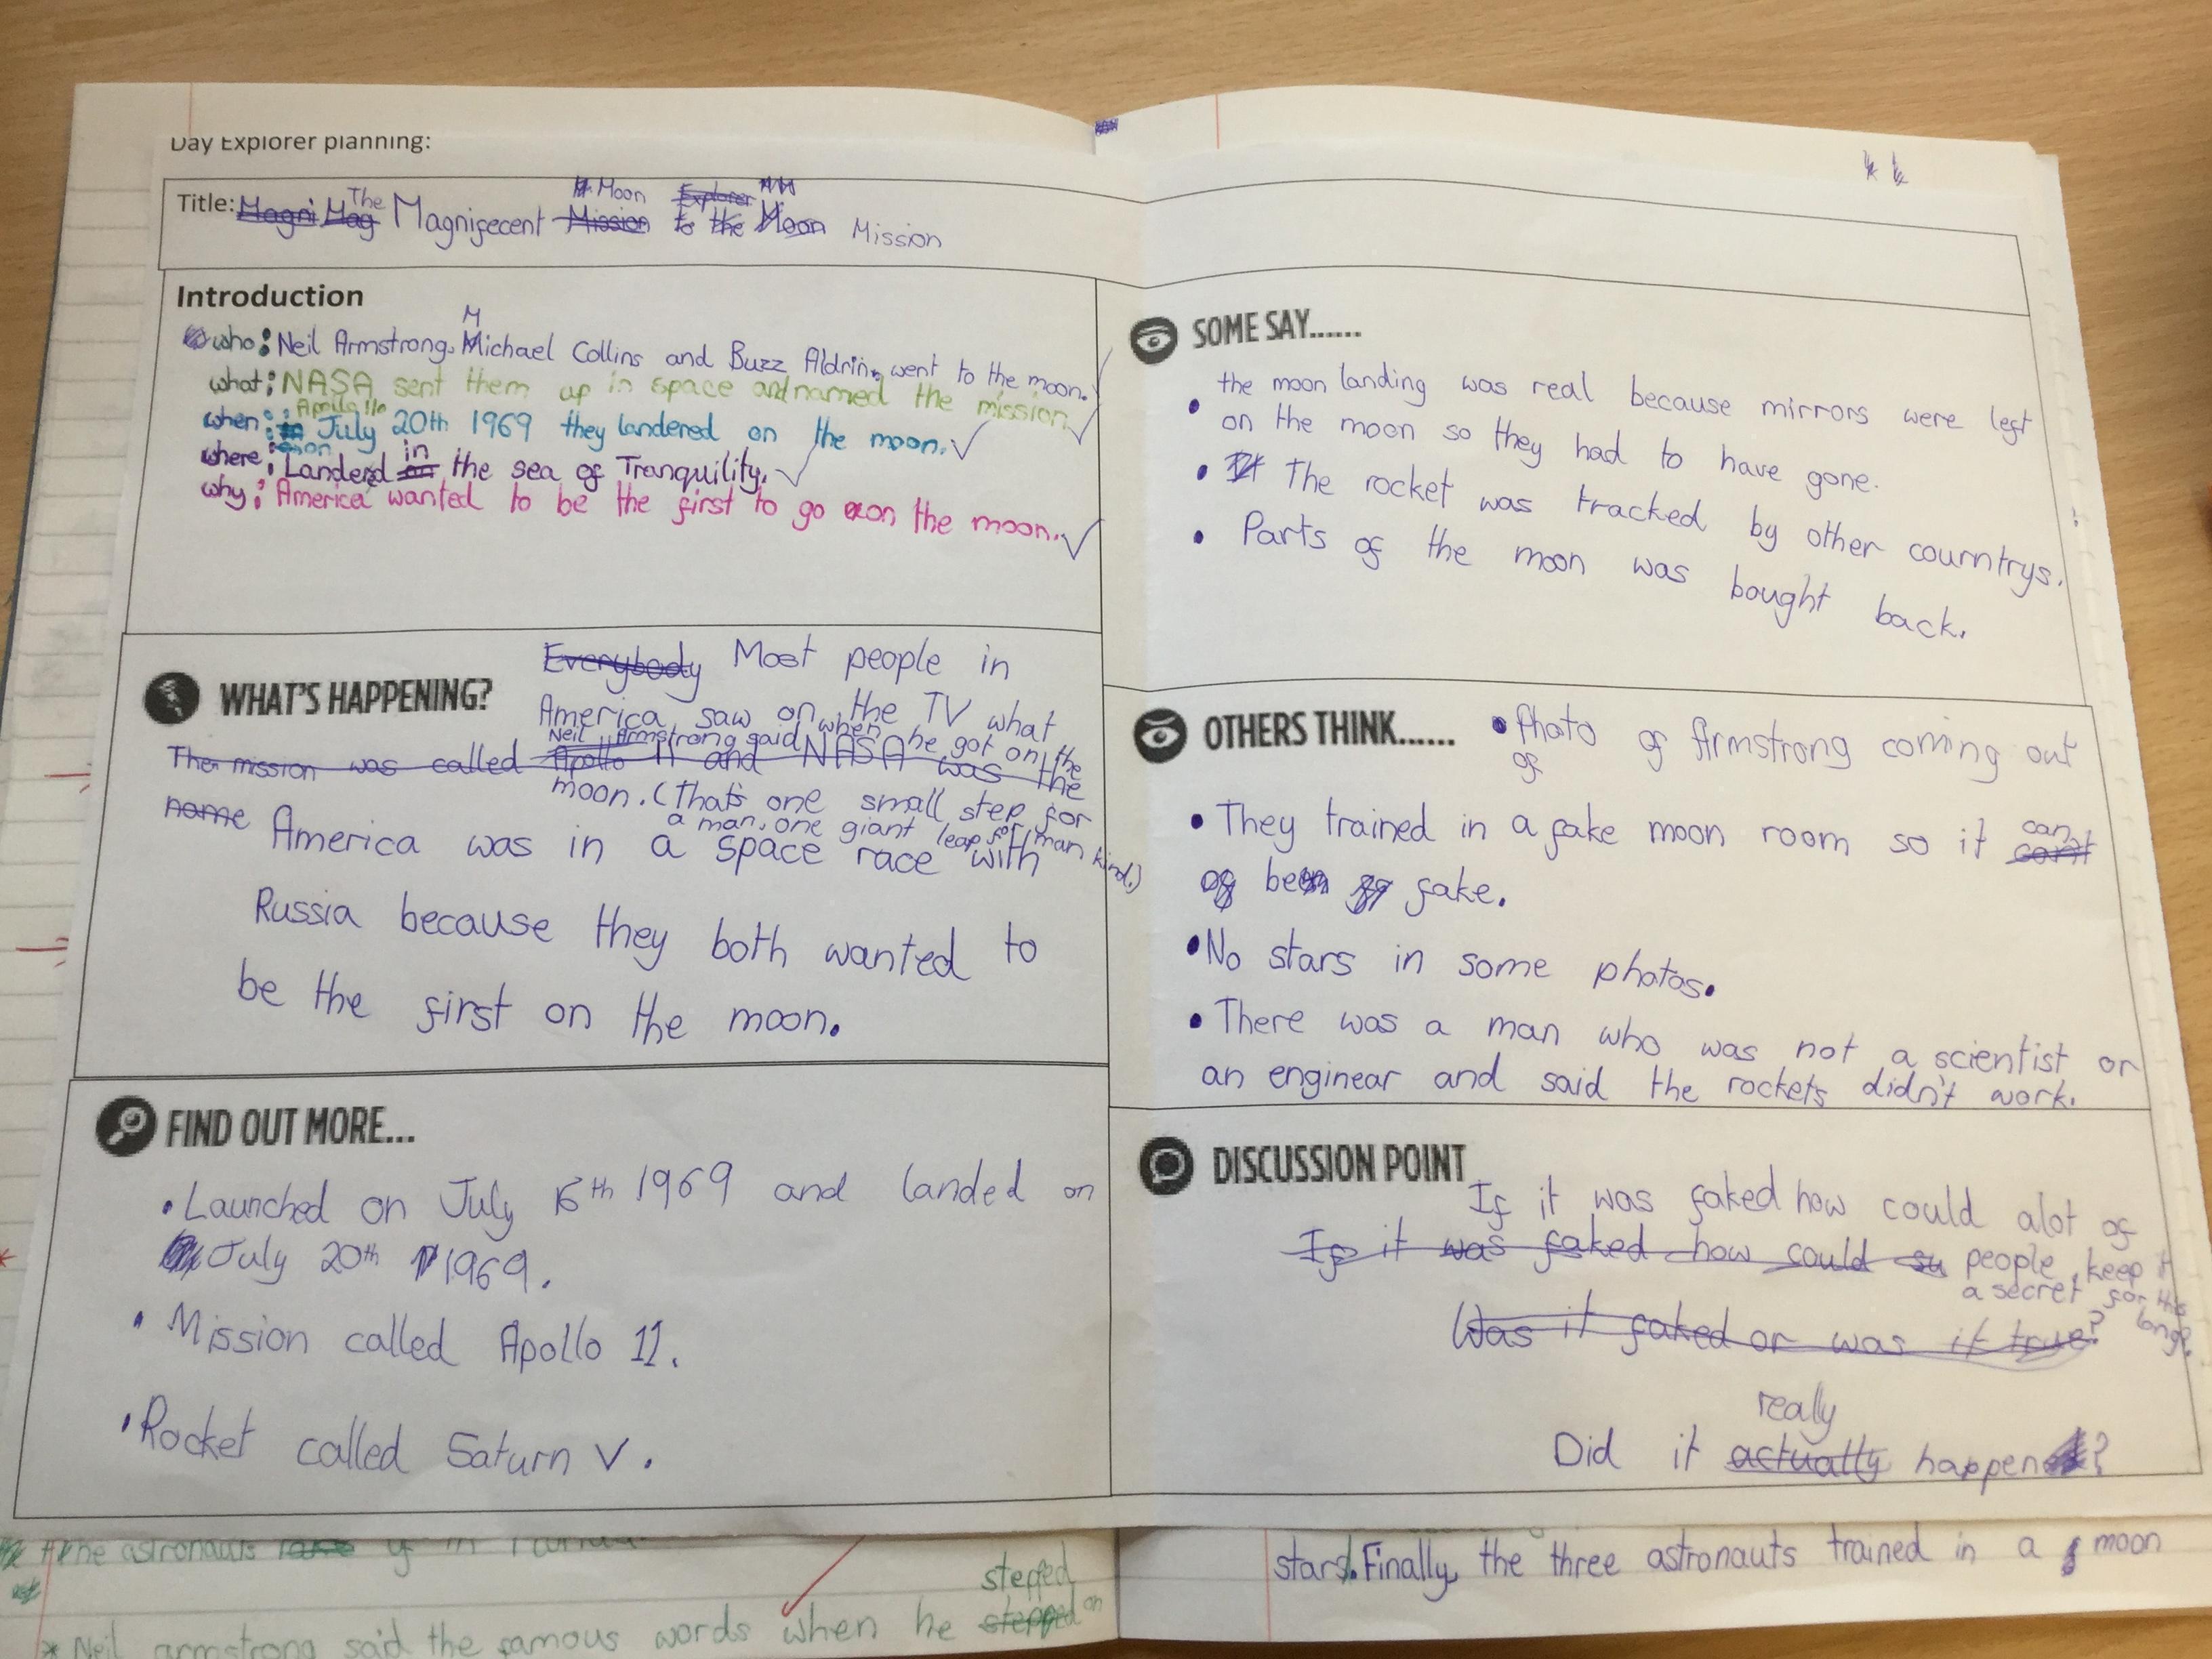 Day Explorer planning:
Title: Magni Mag The Magnifecent Mission Moon to the Explorer Moon Mission
Introduction
who: Neil Armstrong, Michael Collins and Buzz Aldrin, went to the moon.
what: NASA sent them up in space and named the mission
Apollo 11.
when: July 20th 1969 they landered on the moon.
where: Landerd in the sea of Tranquility.
why: America wanted to be the first to go on the moon.
WHAT'S HAPPENING?
Everybody Most people in
America saw on the TV what
Neil Armstrong said when he got on the
moon. (That's one small step for
a man, one giant leap for man kind.)
The mission was called Apollo 11 and NASA was the
name America was in a space race with
Russia because they both wanted to
be the first on the moon.
FIND OUT MORE...
• Launched on July 16th 1969 and landed on
July 20th 1969.
• Mission called Apollo 11.
• Rocket called Saturn V.
SOME SAY......
• the moon landing was real because mirrors were left
on the moon so they had to have gone.
• The rocket was tracked by other courntrys.
• Parts of the moon was bought back.
OTHERS THINK......
• Photo of Armstrong coming out
of
• They trained in a fake moon room so it can
cant
of been fake.
• No stars in some photos.
• There was a man who was not a scientist or
an enginear and said the rockets didn't work.
DISCUSSION POINT
If it was faked how could alot of
people keep it
a secret for this
long?
If it was faked how could su
Was it faked or was it true?
really
Did it actually happen?
the astronauts
stepped
* Neil armstrong said the famous words when he stepped on
stars. Finally, the three astronauts trained in a moon